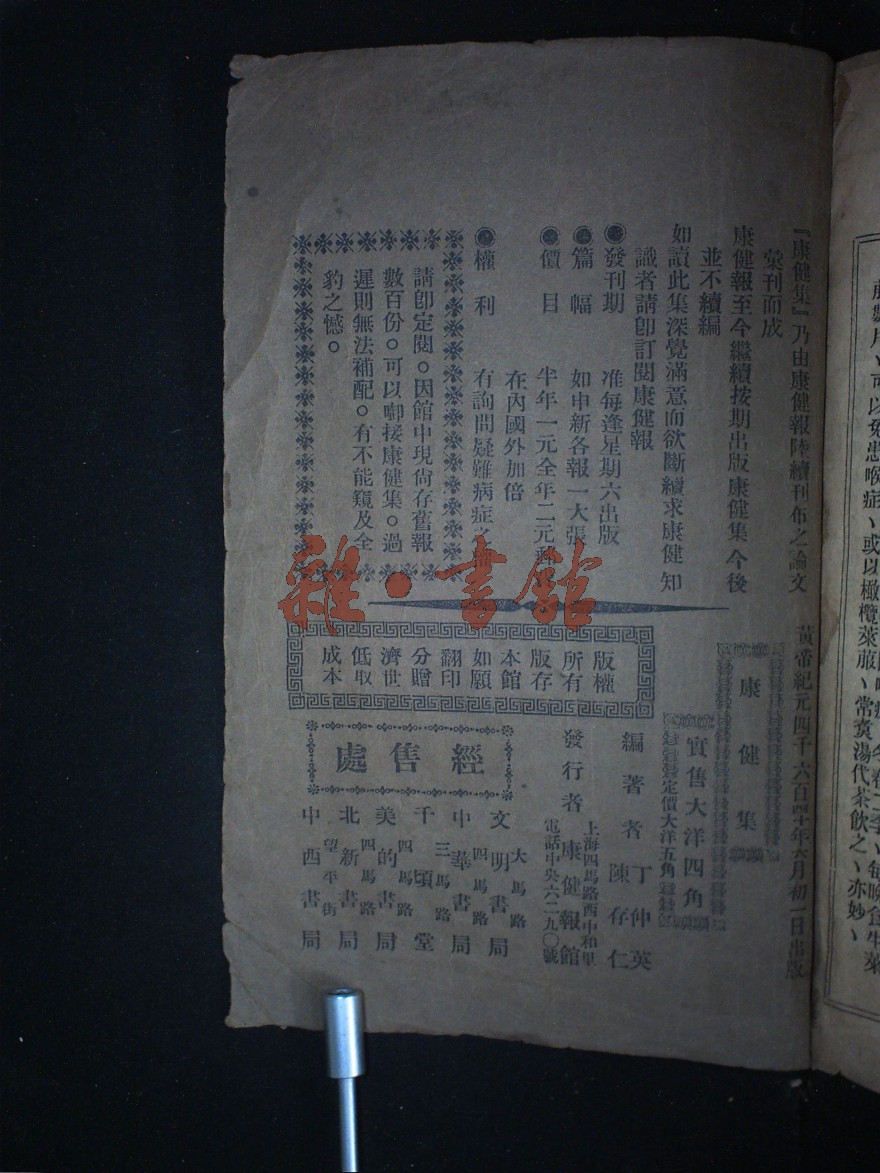 『康健集』乃由康健報陸續刊布之論文
彙刊而成
康健報至今繼續按期出版康健集今後
並不續編
如讀此集深覺滿意而欲斷續求康健知
識者請卽訂閱康健報
發刊期 准每逢星期六出版
篇幅 如申新各報一大張
價目 半年一元全年二元郵
在內國外加倍
權利 有詢問疑難病症之權
請卽定閱。因館中現尙存舊報
數百份。可以啣接康健集。過
遲則無法補配。有不能窺及全
豹之憾。
黃帝紀元四千六百四十年六月初一日出版
康健集
實售大洋四角
定價大洋五角
編著者 丁仲英
陳存仁
發行者 康健報館
上海四馬路西中和里
電話中央六二九〇號
版權
所有
版存
本館
如願
翻印
分贈
濟世
低取
成本
經售處
大馬路
文明書局
四馬路
中華書局
三馬路
千頃堂
四馬路
美的書局
四馬路
北新書局
望平街
中西書局
可以免患喉症、或以橄欖萊菔、常煑湯代茶飲之、亦妙、
雜·書館